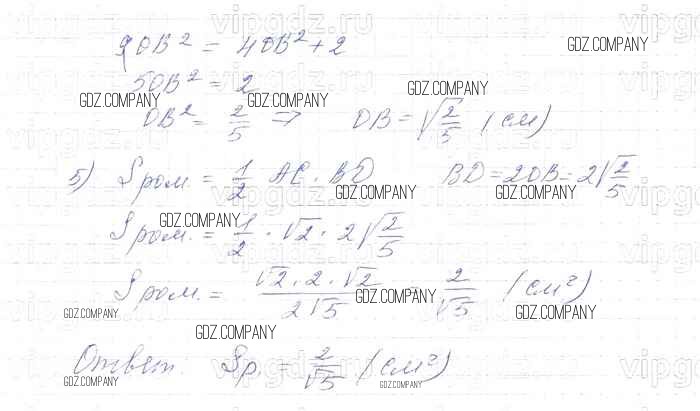 9OB² = 4OB² + 2
5OB² = 2
OB² = 2/5 => OB = √(2/5) (см)
5) Sром. = 1/2 AC · BD BD = 2OB = 2√(2/5)
Sром. = 1/2 · √2 · 2√(2/5)
Sром. = (√2 · 2 · √2)/(2√5) = 2/√5 (см²)
Ответ. Sр. = 2/√5 (см²)
GDZ.COMPANY
GDZ.COMPANY
GDZ.COMPANY
GDZ.COMPANY
GDZ.COMPANY
GDZ.COMPANY
GDZ.COMPANY
GDZ.COMPANY
GDZ.COMPANY
GDZ.COMPANY
GDZ.COMPANY
GDZ.COMPANY
GDZ.COMPANY
vipgdz.ru
vipgdz.ru
vipgdz.ru
vipgdz.ru